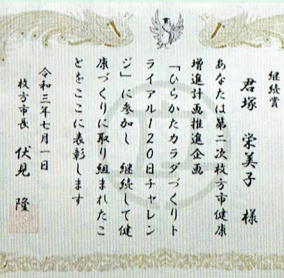 継続賞
君塚 栄美子 様
あなたは第二次枚方市健康
増進計画推進企画
「ひらかたカラダづくりト
ライアル120日チャレン
ジ」に参加し 継続して健
康づくりに取り組まれたこ
とをここに表彰します
令和三年七月一日
枚方市長 伏見 隆